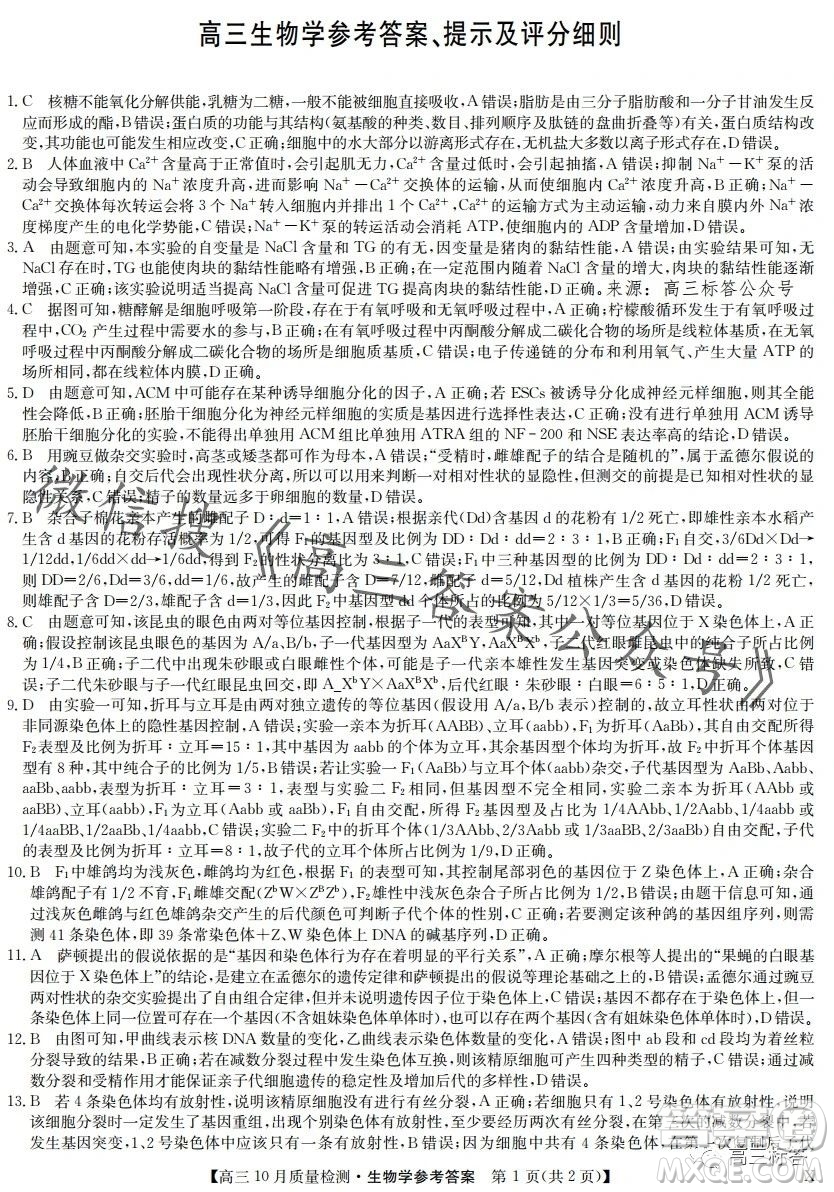 高三生物学参考答案、提示及评分细则
1.C 核糖不能氧化分解供能,乳糖为二糖,一般不能被细胞直接吸收,A错误;脂肪是由三分子脂肪酸和一分子甘油发生反
应而形成的酯,B错误;蛋白质的功能与其结构(氨基酸的种类、数目、排列顺序及肽链的盘曲折叠等)有关,蛋白质结构改
变,其功能也可能发生相应改变,C正确;细胞中的水大部分以游离形式存在,无机盐大多数以离子形式存在,D错误。
2.B 人体血液中Ca²⁺含量高于正常值时,会引起肌无力,Ca²⁺含量过低时,会引起抽搐,A错误;抑制Na⁺-K⁺泵的活
动会导致细胞内的Na⁺浓度升高,进而影响Na⁺-Ca²⁺交换体的运输,从而使得细胞内Ca²⁺浓度升高,B正确;Na⁺-
Ca²⁺交换体每次转运会将3个Na⁺转入细胞内并排出1个Ca²⁺,Ca²⁺的运输方式为主动运输,动力来自膜内外Na⁺浓
度梯度产生的电化学势能,C错误;Na⁺-K⁺泵的转运活动会消耗ATP,使细胞内的ADP含量增加,D错误。
3.A 由题意可知,本实验的自变量是NaCl含量和TG的有无,因变量是猪肉的黏结性能,A错误;由实验结果可知,无
NaCl存在时,TG也能使肉块的黏结性能略有增强,B正确;在一定范围内随着NaCl含量的增大,肉块的黏结性能逐渐
增强,C正确;该实验说明适当提高NaCl含量可促进TG提高肉块的黏结性能,D正确。来源:高三标答公众号
4.C 据图可知,糖酵解是细胞呼吸第一阶段,存在于有氧呼吸和无氧呼吸过程中,A正确;柠檬酸循环发生于有氧呼吸过
程中,CO₂产生过程中需要水的参与,B正确;在有氧呼吸过程中丙酮酸分解成二碳化合物的场所是线粒体基质,在无氧
呼吸过程中丙酮酸分解成二碳化合物的场所是细胞质基质,C错误;电子传递链的分布和利用氧气、产生大量ATP的
场所相同,都在线粒体内膜,D正确。
5.D 由题意可知,ACM中可能存在某种诱导细胞分化的因子,A正确;若ESCs被诱导分化成神经元样细胞,则其全能
性会降低,B正确;胚胎干细胞分化为神经元样细胞的实质是基因进行选择性表达,C正确;没有进行单独用ACM诱导
胚胎干细胞分化的实验,不能得出单独ACM组比单独ATRA组的NF-200和NSE表达率高的结论,D错误。
6.B 用豌豆做杂交实验时,高茎或矮茎都可作为母本,A错误;“受精时,雌雄配子的结合是随机的”,属于孟德尔假说的
内容,B正确;自交后代会出现性状分离,所以可以用来判断一对相对性状的显隐性,但测交的前提是已知相对性状的显
隐性关系,C错误;精子的数量远多于卵细胞的数量,D错误。
7.B 杂合子棉花亲本产生的雌配子D∶d=1∶1,A错误;根据亲代(Dd)含基因d的花粉有1/2死亡,即雄性亲本水稻产
生含d基因的花粉存活概率为1/2,可得F₁的基因型及比例为DD∶Dd∶dd=2∶3∶1,B正确;F₁自交,3/6Dd×Dd→
1/12dd,1/6dd×dd→1/6dd,得到F₂的性状分离比为3∶1,C错误;F₁中三种基因型的比例为DD∶Dd∶dd=2∶3∶1,
则DD=2/6,Dd=3/6,dd=1/6,故产生的雌配子含D=7/12,雌配子d=5/12,Dd植株产生含d基因的花粉1/2死亡,
则雄配子含D=2/3,雄配子含d=1/3,因此F₂中基因型dd个体所占的比例为5/12×1/3=5/36,D错误。
8.C 由题意可知,该昆虫的眼色由两对等位基因控制,根据子一代的表型可知,其中一对等位基因位于X染色体上,A正
确;假设控制该昆虫眼色的基因为A/a、B/b,子一代基因型为AaXᴮY、AaXᴮXᵇ,子二代红眼雌昆虫中的纯合子所占比例
为1/4,B正确;子二代中出现朱砂眼或白眼雌性个体,可能是子一代亲本雄性发生基因突变或染色体缺失所致,C错
误;子二代朱砂眼与子一代红眼昆虫回交,即A_XᵇY×AaXᴮXᵇ,后代红眼∶朱砂眼∶白眼=6∶5∶1,D正确。
9.D 由实验一可知,折耳与立耳是由两对独立遗传的等位基因(假设用A/a,B/b表示)控制的,故立耳性状是由两对位于
非同源染色体上的隐性基因控制,A错误;实验一亲本为折耳(AABB)、立耳(aabb),F₁为折耳(AaBb),其自由交配所得
F₂表型及比例为折耳∶立耳=15∶1,其中基因为aabb的个体为立耳,其余基因型个体都为折耳,F₂中折耳个体基因型
有8种,其中纯合子的比例为1/5,B错误;若让实验一F₁(AaBb)与立耳个体(aabb)杂交,子代基因型为AaBb、Aabb、
aaBb、aabb,表型为折耳∶立耳=3∶1,表型与实验二F₂相同,但基因型不完全相同,实验二亲本为折耳(AAbb或
aaBB)、立耳(aabb),F₁为立耳(Aabb或aaBb),自由交配,所得F₂基因型及占比为1/4AAbb、1/2Aabb、1/4aabb或
1/4aaBB、1/2aaBb、1/4aabb,C错误;实验二F₂中的折耳个体(1/3AAbb、2/3Aabb或1/3aaBB、2/3aaBb)自由交配,子代
的表型为折耳∶立耳=8∶1,故子代的立耳个体所占比例为1/9,D正确。
10.B F₁中雄鸽均为浅灰色,雌鸽均为红色,根据F₁的表型可知,其控制尾部羽色的基因位于Z染色体上,A正确;杂合
雄鸽配子有1/2不育,F₁雌雄交配(ZᵇW×ZᴮZᵇ),F₂雄性中浅灰色杂合子所占比例为1/2,B错误;由题干信息可知,用
浅灰色雌鸽与红色雄鸽杂交产生的后代颜色可判断子代个体的性别,C正确;若测定该种鸽的基因组序列,则
需测41条染色体,即39条常染色体+Z、W染色体上DNA的碱基序列,D正确。
11.A 萨顿提出的假说依据的是“基因和染色体行为存在着明显的平行关系”,A正确;摩尔根等人提出的“果蝇的白眼基
因位于X染色体上”的结论,是建立在孟德尔的遗传定律和萨顿提出的假说等理论基础之上的,B错误;孟德尔通过豌豆
两对性状的杂交实验提出了基因的自由组合定律,但其没有证明其遗传因子位于染色体上,C错误;在一对同源染色体
上,相同一位置可存在一个基因(不含姐妹染色单体时),也可以存在两个基因(含有姐妹染色单体时),D错误。
12.B 由图可知,甲曲线表示核DNA数量的变化,乙曲线表示染色体数量的变化,A错误;图中ab段和cd段均为着丝粒
分裂导致的结果,B正确;若在减数分裂过程中发生染色体互换,则该精原细胞可产生四种类型的精子,C错误;减数分
裂和受精作用才能保证亲子代细胞遗传的稳定性与增加后代的多样性,D错误。
13.B 若4条染色体均有放射性,说明该精原细胞没有进行有丝分裂,A错误;若仅有1、2号染色体有放射性,说明
该细胞分裂时一定发生了基因重组,而在这之前经历了至少两次有丝分裂,在第二次的减数分裂中,若
发生基因突变,1、2号染色体中共有4条染色体,在第
【高三10月质量检测·生物学参考答案 第1页(共2页)】
微信搜《高三答案公众号》
高三标答